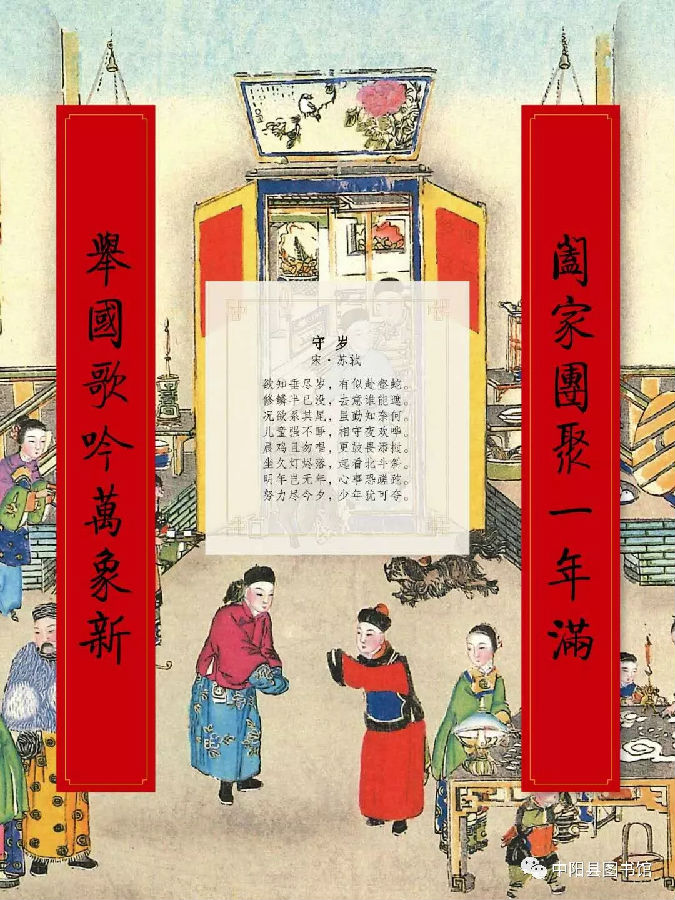 闔家團聚一年滿
舉國歌吟萬象新
守岁
宋·苏轼
欲知垂尽岁，有似赴壑蛇。
修鳞半已没，去意谁能遮。
况欲系其尾，虽勤知奈何。
儿童强不睡，相守夜欢哗。
晨鸡且勿唱，更鼓畏添挝。
坐久灯烬落，起看北斗斜。
明年岂无年，心事恐蹉跎。
努力尽今夕，少年犹可夸。
中阳县图书馆